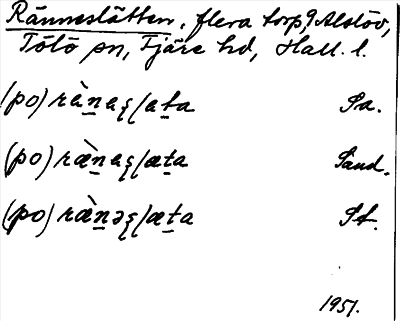 Ränneslätten, flera torp, Alslöv,
Tölö sn, Fjäre hd, Hall. l.
(po) rànas̱lata Sa.
(po) ræ̀nas̱læta Sand.
(po) ræ̀nəs̱læta St.
1951.